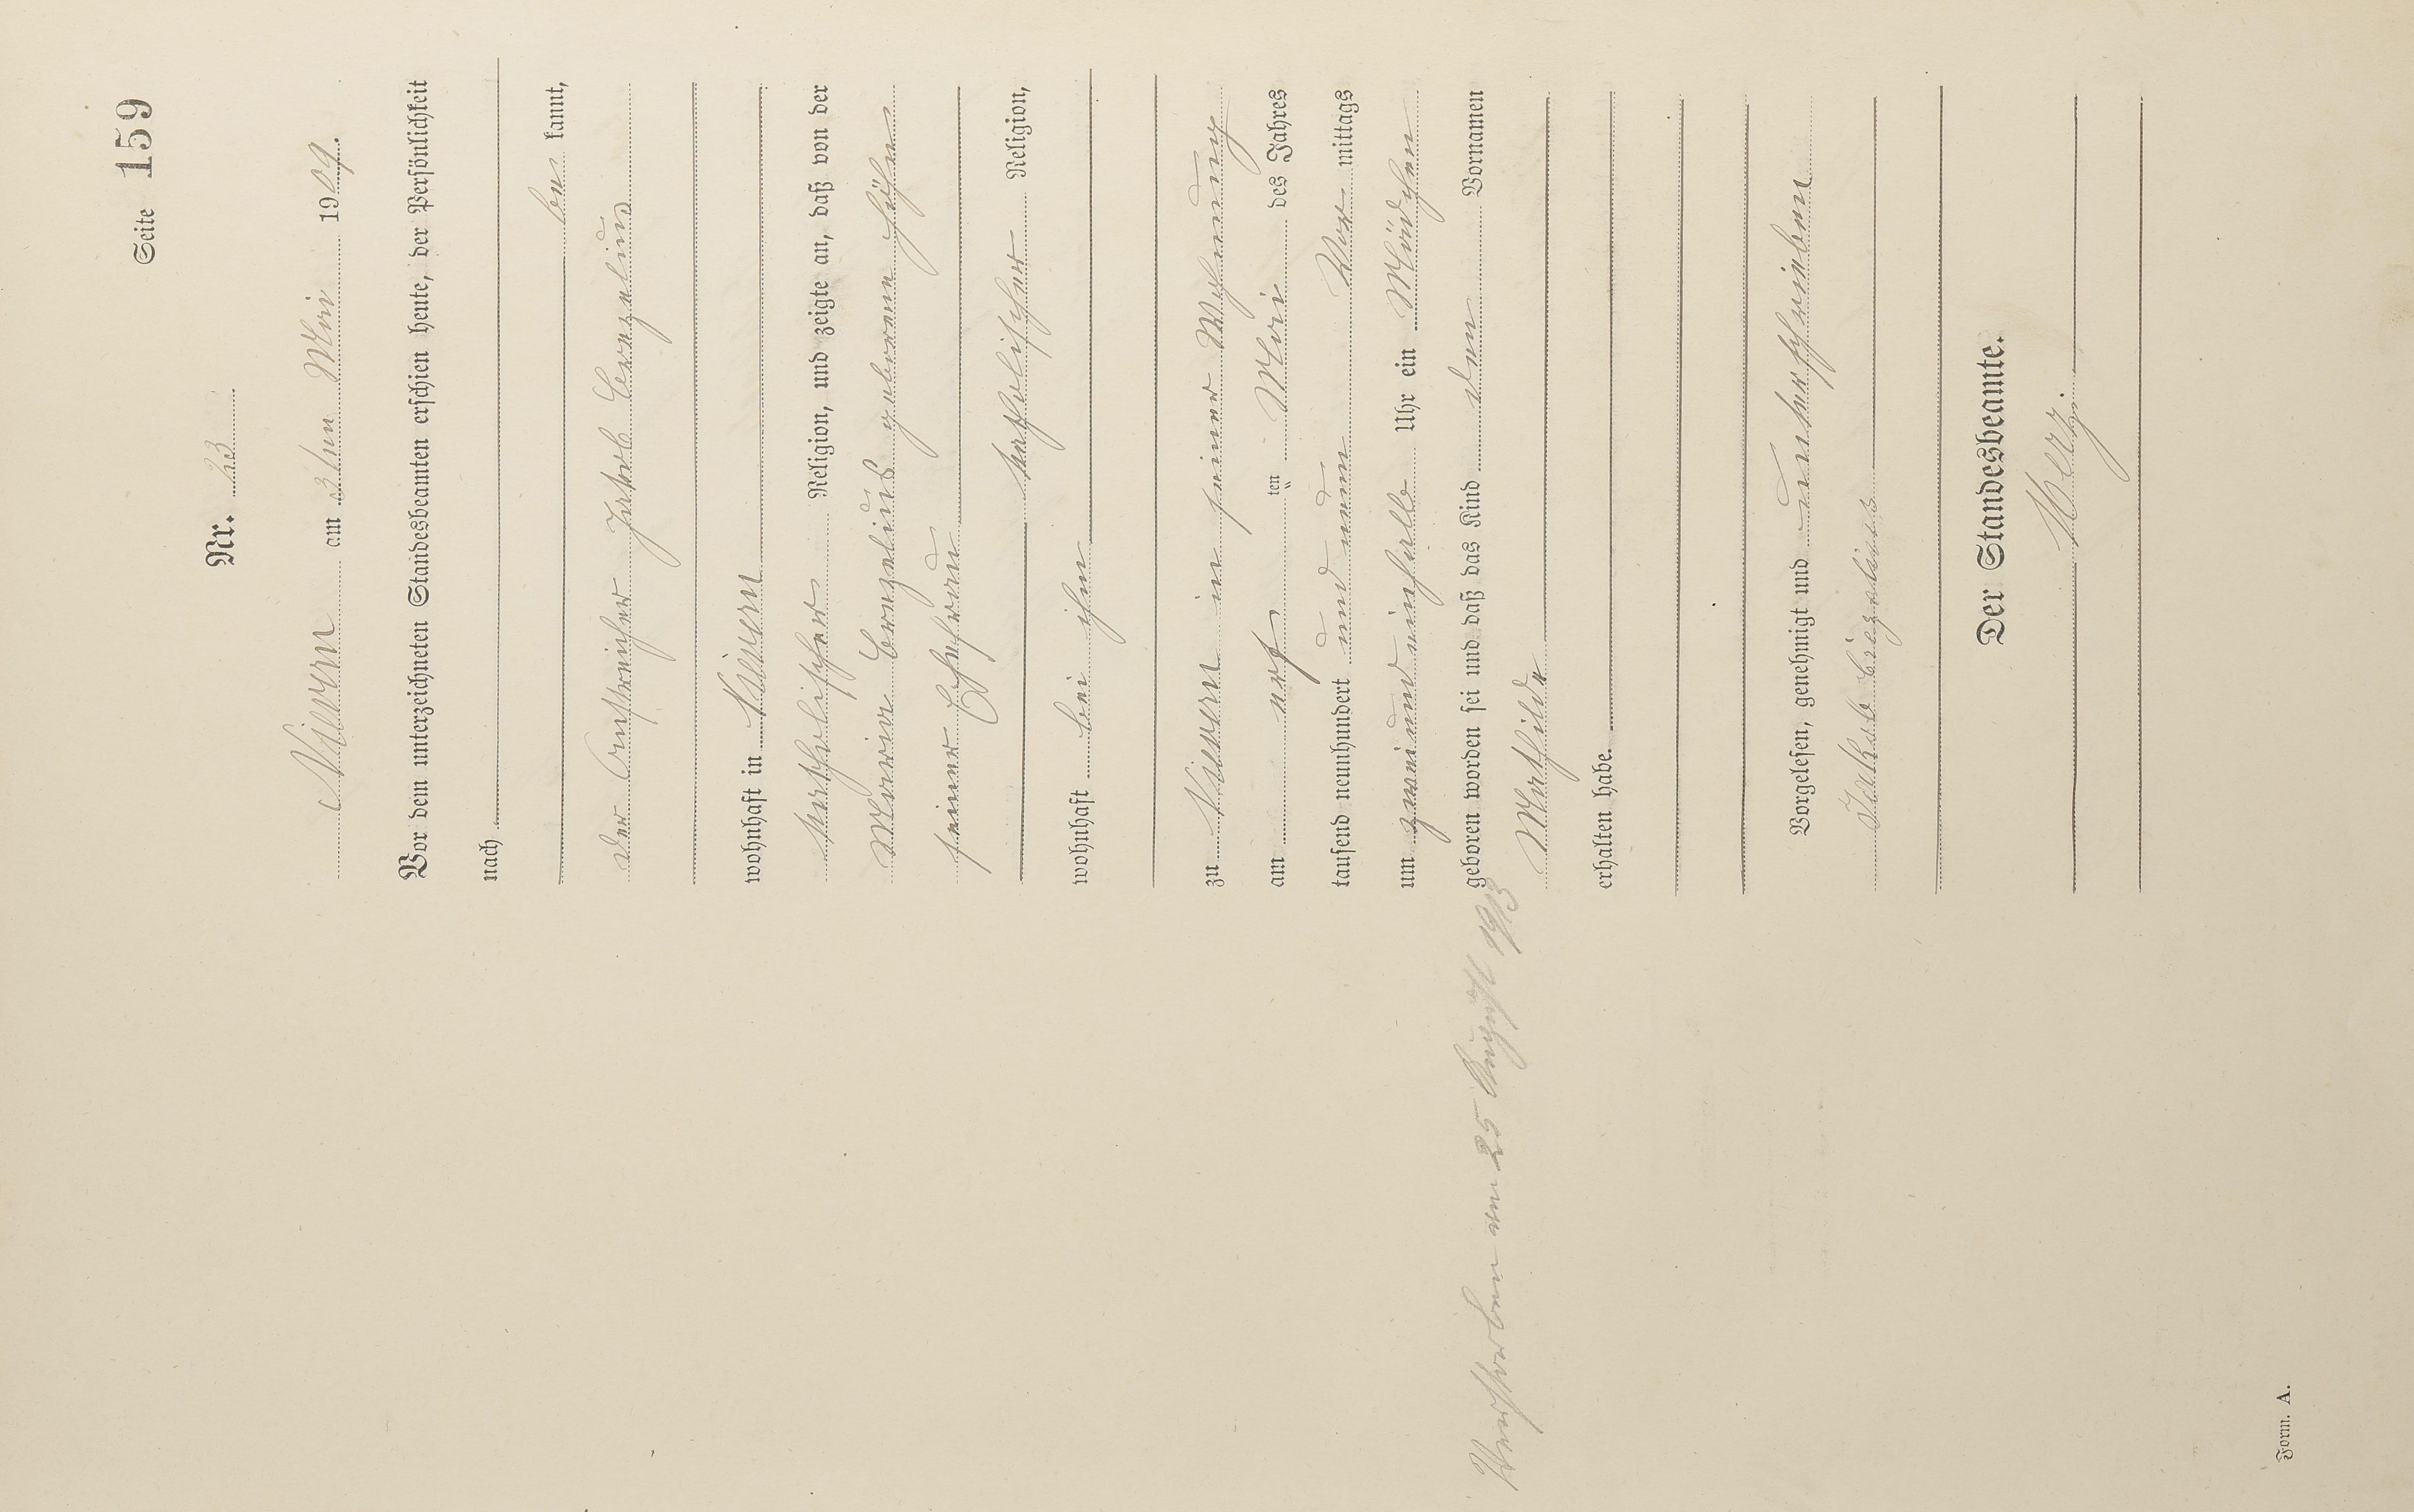 Seite 159
Nr. 23
Nievern am 3ten Mai 1909.
Vor dem unterzeichneten Standesbeamten erschien heute, der Persönlichkeit
nach
be kannt,
der Anstreicher Jakob Crezelius
wohnhaft in Nievern
katholischer Religion, und zeigte an, daß von der
Maria Crezelius geborene Höhn
seiner Ehefrau
katholischer Religion,
wohnhaft bei ihm
zu Nievern in seiner Wohnung
am erst ten Mai des Jahres
tausend neunhundert und neun Vor mittags
um zweiundeinhalb Uhr ein Mädchen
geboren worden sei und daß das Kind den Vornamen
Mathilde
erhalten habe.
Vorgelesen, genehmigt und unterschrieben
Jakob Crezelius
Der Standesbeamte.
Verstorben am 25 August 1913
Form. A.